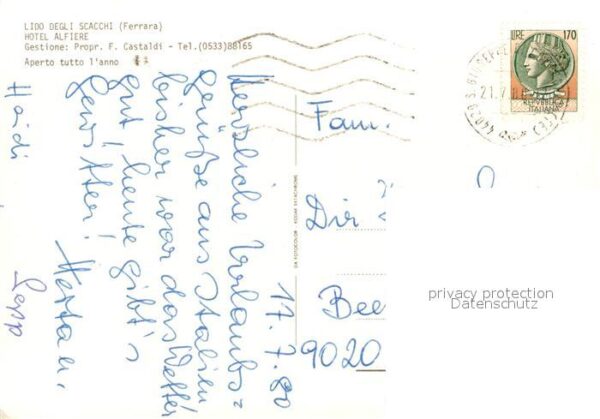 LIDO DEGLI SCACCHI (Ferrara)
HOTEL ALFIERE
Gestione: Propr. F. Castaldi - Tel.(0533)88165
Aperto tutto l'anno
LIRE 170
REPUBBLICA
ITALIANA
44020
21.7
17.7.80
Herzliche Urlaubs=
grüße aus Italien
bisher war das Wetter
gut! heute gibt's
Gewitter!
Heidi
Sepp
Fam.
Dir
9020
privacy protection
Datenschutz